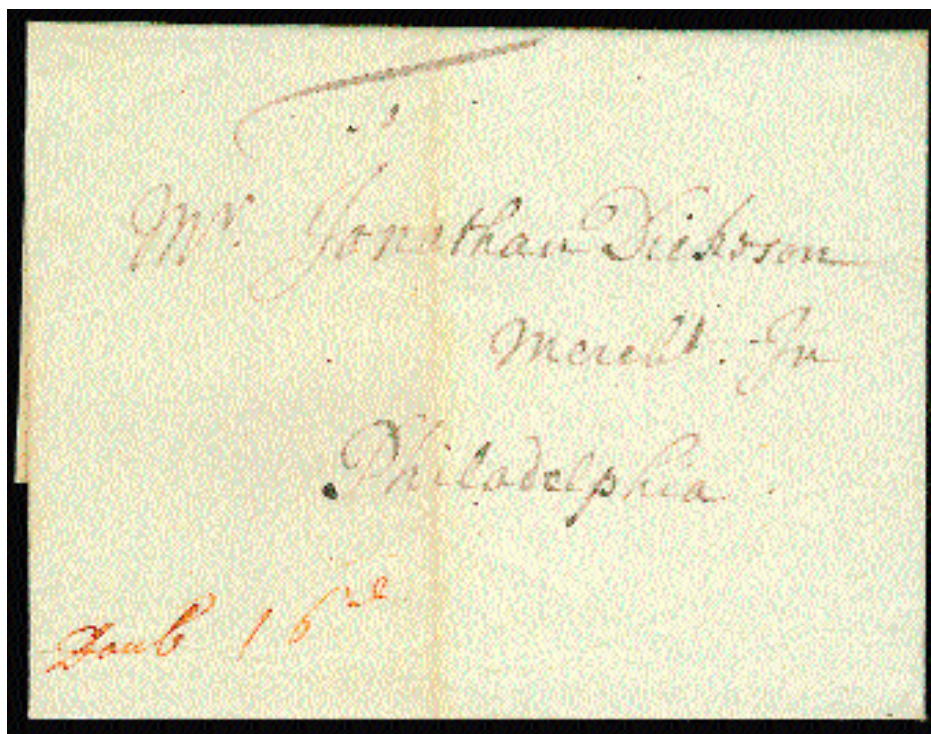 Mr. Jonathan Dickson
Mercht. In
Philadelphia
Doub 16